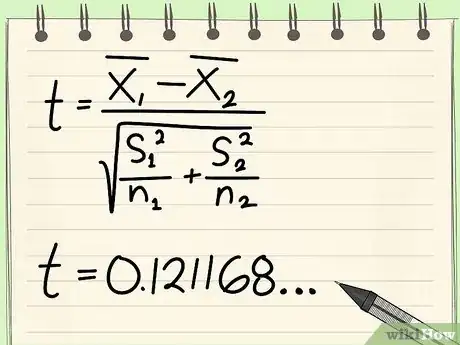 t = (X̅₁ − X̅₂) / √(S₁²/n₁ + S₂²/n₂)
t = 0.121168...
wikiHow